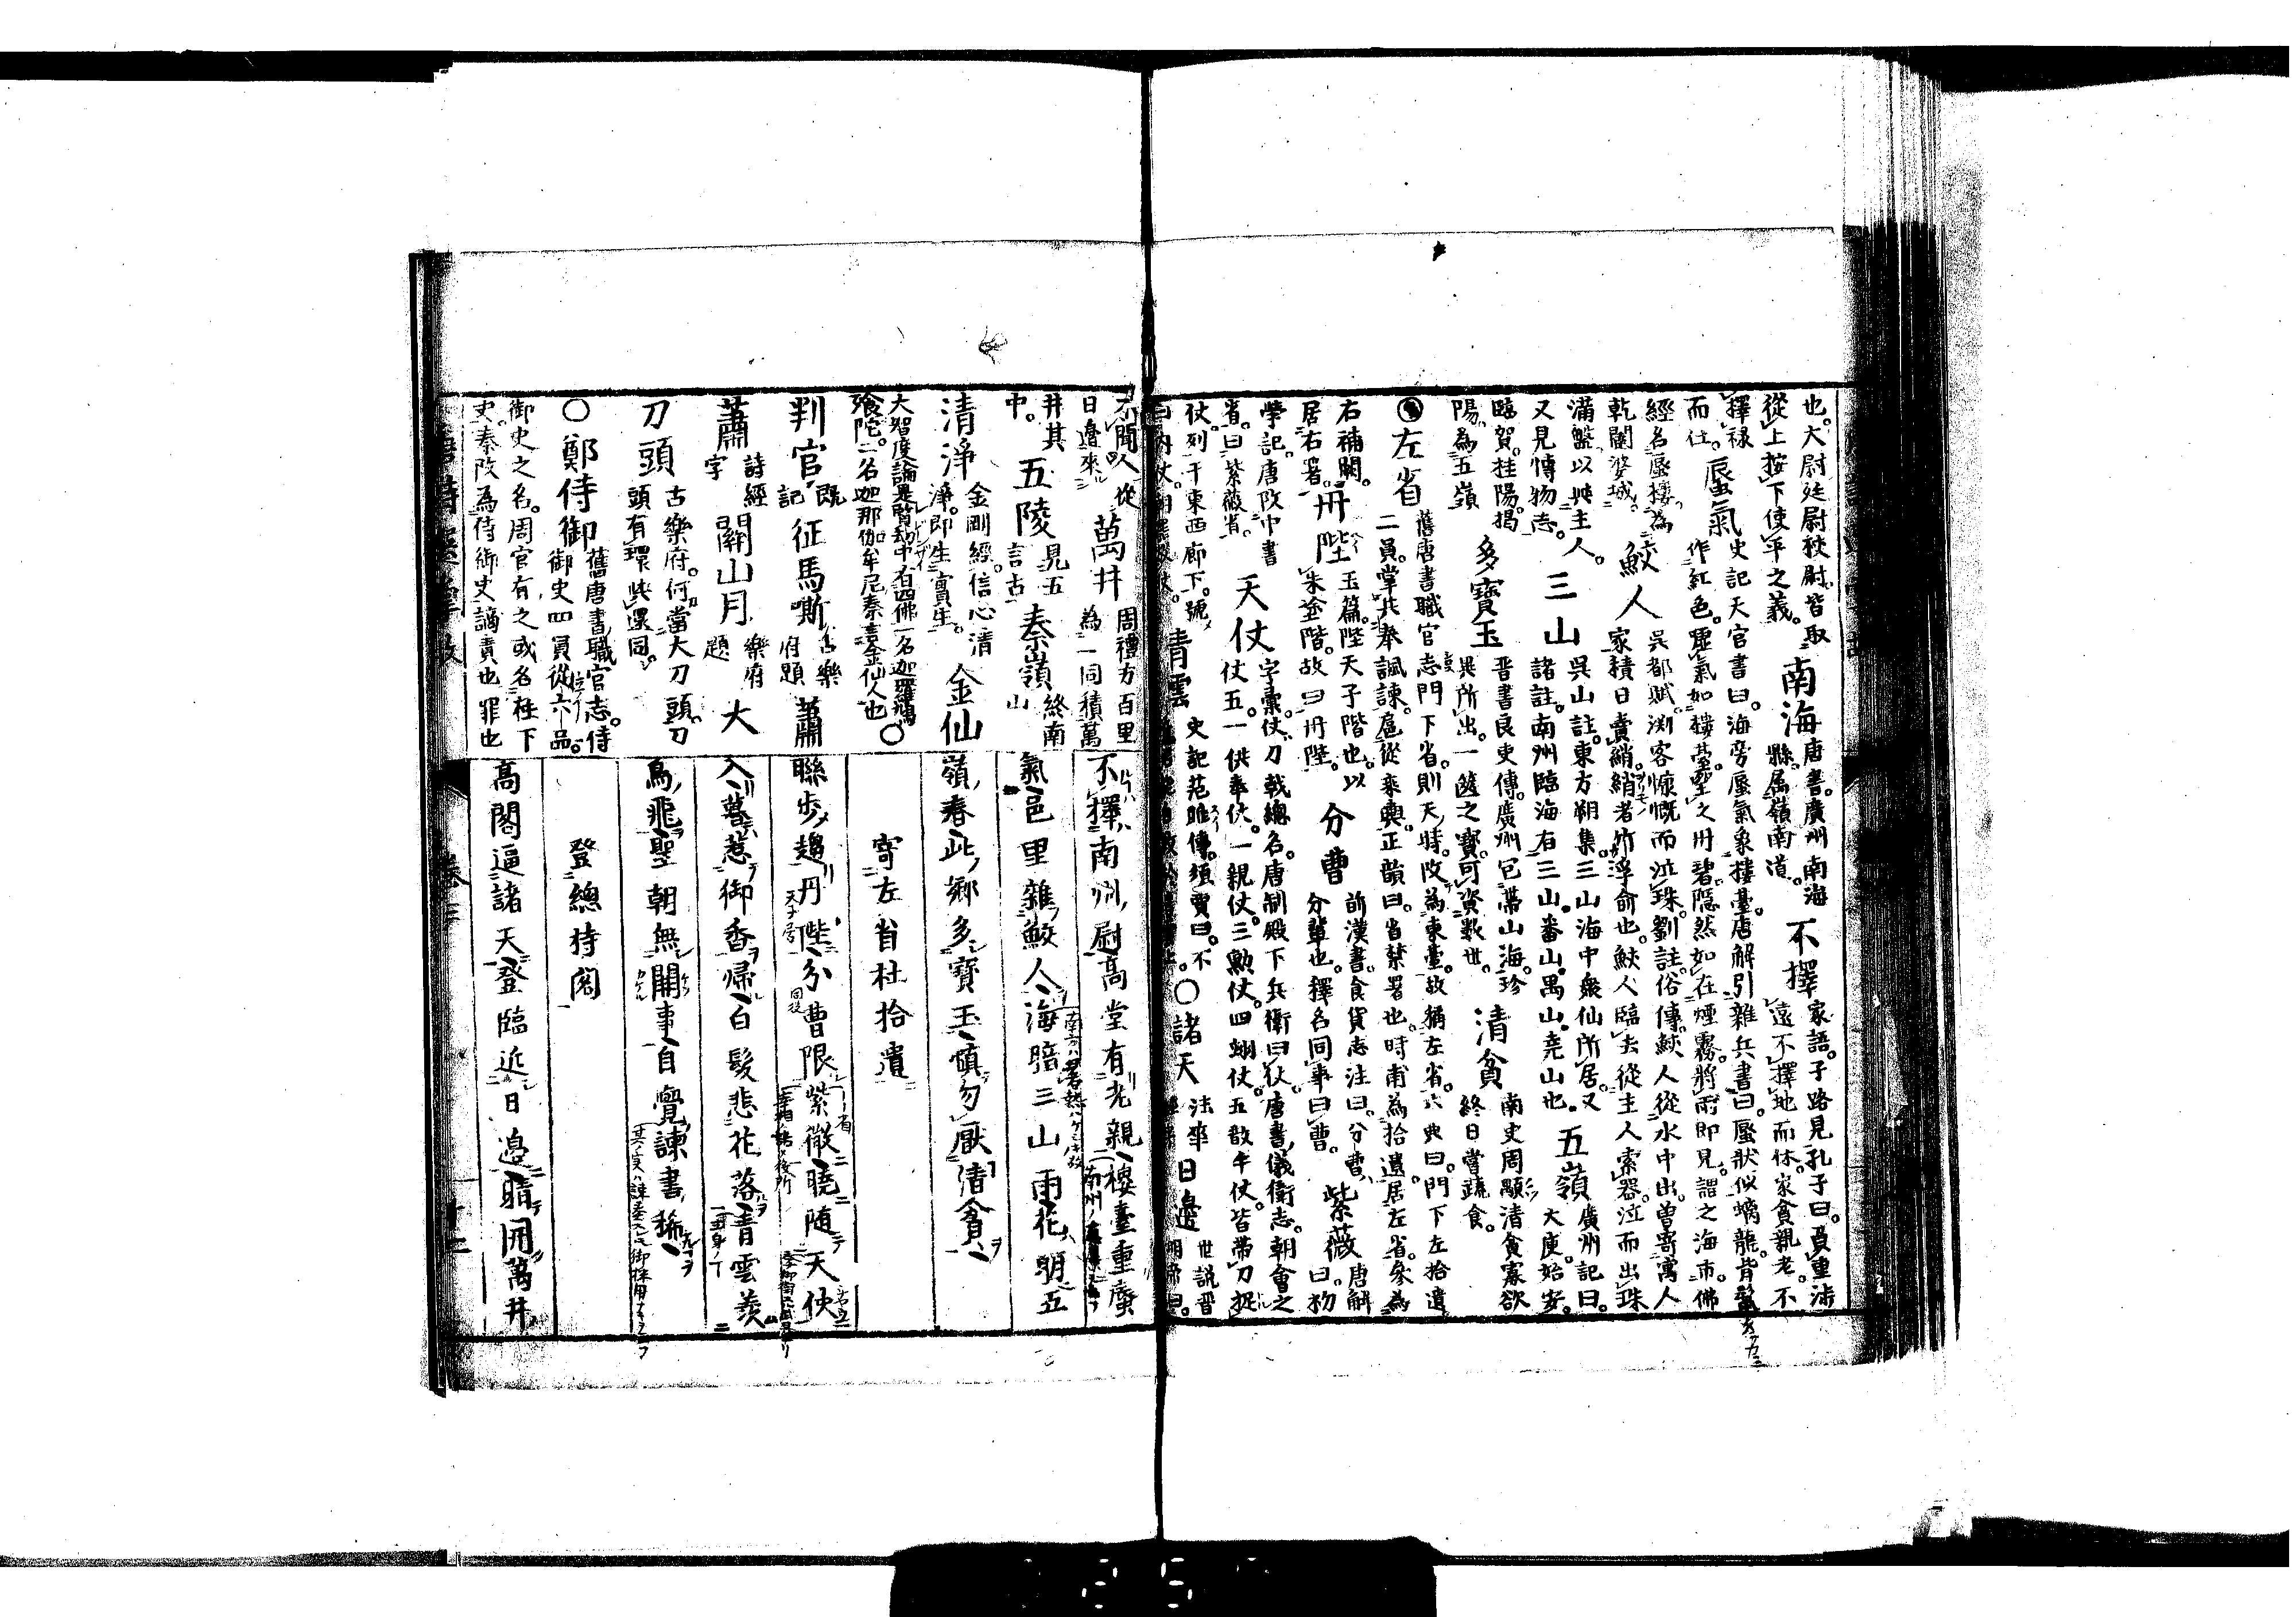 也。大尉廷尉校尉。皆取
從上按下使平之義。
南海
唐書。廣州南海
縣。屬嶺南道。
不擇
家語。子路見孔子曰。負重涉
遠不擇地而休。家貧親老。不
擇祿
而仕。
蜃氣
史記天官書曰。海旁蜃氣象樓臺。唐解引雜兵書曰。蜃狀似螭龍。背鬣
作紅色。噓氣如樓臺。望之丹碧。隱然如在煙霧。將雨即見。謂之海市。佛
經名蜃樓。為
乾闥婆城。
鮫人
吳都賦。渕客慷慨而泣珠。劉註。俗傳。鮫人從水中出。曽寄寓人
家積日賣綃。綃者竹孚俞也。鮫人臨去從主人索器。泣而出珠
滿盤以與主人。
又見博物志。
三山
吳山註。東方朔集。三山海中衆仙所居。又
諸註。南州臨海有三山。番山。禺山。堯山也。
五嶺
廣州記曰。
大庾。始安。
臨賀。桂陽。揭
陽。為五嶺
多寶玉
晋書良吏傳。廣州包帶山海。珍
異所出。一篋之寶。可資数世。
清貧
南史周顒清貧寡欲
終日嘗蔬食。
左省
舊唐書職官志門下省。則天時。改為東臺。故稱左省。六典曰。門下左拾遺
二員。掌共奉諷諫。扈從乘輿。正韻曰。省禁署也。時甫為拾遺。居左省。參為
右補闕。
居右署。
丹陛
玉篇。陛天子階也。以
朱塗階。故曰丹陛。
分曹
前漢書。食貨志注曰。分曹
分輩也。釋名同事曰曹。
紫薇
唐解
曰。初
學記。唐改中書
省。曰紫薇省。
天仗
字彙。仗刀戟總名。唐制殿下兵衛曰仗。唐書儀衛志。朝會之
仗五。一供奉仗。一親仗。三勲仗。四翊仗。五散手仗。皆帶刀捉
仗。列于東西廊下。號
曰内仗。朝罷放仗。
青雲
史記范雎傳。須賈曰。不
○諸天
法華
日邊
世説晋
明帝曰。
不聞人從
日邊來。
萬井
周禮方百里
為一同積萬
井其
中。
五陵
見五
言古
秦嶺
終南
山
清淨
金剛經。信心清
淨。即生實生。
金仙
大智度論是賢劫中有四佛一名迦羅鳩
飱陀。二名迦那伽牟尼秦言金仙人也
○
判官
既
記
征馬嘶
古樂
府題
蕭
蕭
詩經
字
關山月
樂府
題
大
刀頭
古樂府。何當大刀頭。刀
頭有環。與還同。
○鄭侍御
舊唐書。職官志。侍
御史四員從六品。
御史之名。周官有之或名柱下
史。秦改為侍御史謫責也罪也
不擇南州尉高堂有老親樓臺重蜃
氣邑里雜鮫人海暗三山雨花明五
嶺春此鄉多寶玉慎勿厭清貧
寄左省杜拾遺
聯歩趨丹陛分曹限紫微曉随天仗
入暮惹御香歸白髮悲花落青雲羨
鳥飛聖朝無闕事自覺諫書稀
登總持閣
高閣逼諸天登臨近日邊晴開萬井